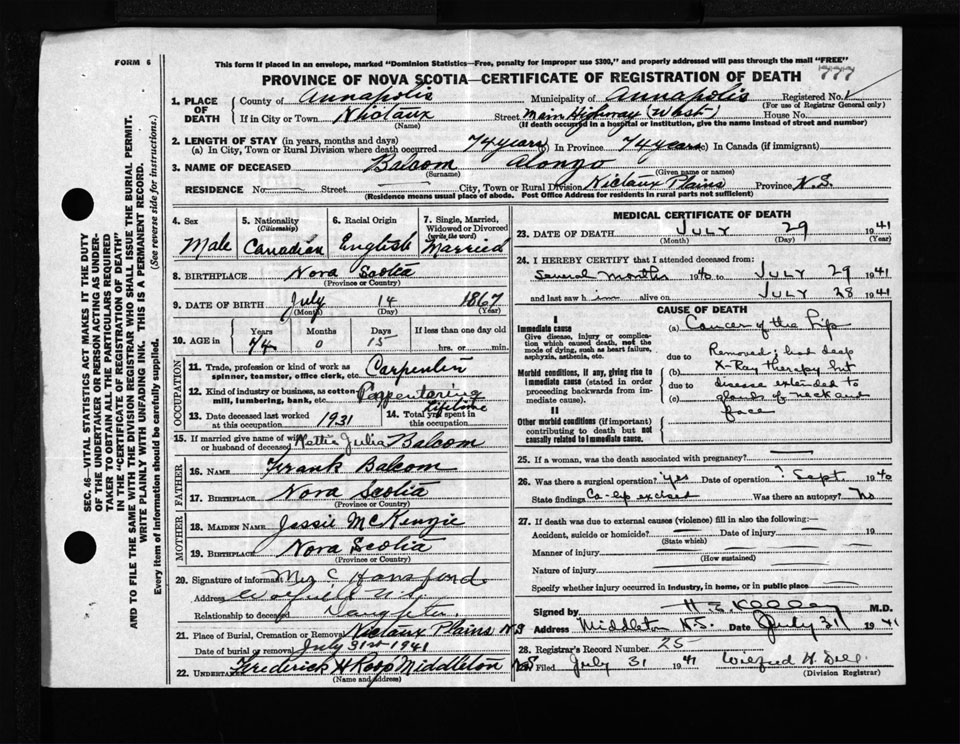 FORM 6
This form if placed in an envelope, marked "Dominion Statistics—Free, penalty for improper use $300," and properly addressed will pass through the mail "FREE"
PROVINCE OF NOVA SCOTIA—CERTIFICATE OF REGISTRATION OF DEATH
777
1. PLACE OF DEATH
County of Annapolis Municipality of Annapolis Registered No.
(For use of Registrar General only)
If in City or Town Nictaux Street Main Highway (West) House No.
(Name) (If death occurred in a hospital or institution, give the name instead of street and number)
2. LENGTH OF STAY (in years, months and days)
(a) In City, Town or Rural Division where death occurred 74 years In Province 74 years (c) In Canada (if immigrant)
3. NAME OF DECEASED Balcom Alonzo
(Surname) (Given name or names)
RESIDENCE No. — Street — City, Town or Rural Division Nictaux Plains Province N.S.
(Residence means usual place of abode. Post Office Address for residents in rural parts not sufficient)
4. Sex Male
5. Nationality (Citizenship) Canadian
6. Racial Origin English
7. Single, Married, Widowed or Divorced (write the word) Married
8. BIRTHPLACE Nova Scotia
(Province or Country)
9. DATE OF BIRTH July 14 1867
(Month) (Day) (Year)
10. AGE in Years 74 Months 0 Days 15 If less than one day old
hrs. or min.
OCCUPATION
11. Trade, profession or kind of work as spinner, teamster, office clerk, etc. Carpenter
12. Kind of industry or business, as cotton mill, lumbering, bank, etc.
13. Date deceased last worked at this occupation 1931
14. Total yrs. spent in this occupation Lifetime
15. If married give name of wife or husband of deceased Nettie Julia Balcom
FATHER
16. NAME Frank Balcom
17. BIRTHPLACE Nova Scotia
(Province or Country)
MOTHER
18. MAIDEN NAME Jessie McKenzie
19. BIRTHPLACE Nova Scotia
(Province or Country)
20. Signature of informant Mrs C Hansford
Address Wolfville N.S.
Relationship to deceased Daughter.
21. Place of Burial, Cremation or Removal Nictaux Plains N.S
Date of burial or removal July 31st 1941
22. Undertaker Frederick H Roop Middleton N.S.
(Name and address)
MEDICAL CERTIFICATE OF DEATH
23. DATE OF DEATH JULY 29 1941
(Month) (Day) (Year)
24. I HEREBY CERTIFY that I attended deceased from:
Several months 1940 to JULY 29 1941
and last saw him alive on JULY 28 1941
CAUSE OF DEATH
I
Immediate cause
Give disease, injury or complication which caused death, not the mode of dying, such as heart failure, asphyxia, asthenia, etc.
(a) Cancer of the Lip
due to Removed & had deep
Morbid conditions, if any, giving rise to immediate cause (stated in order proceeding backwards from immediate cause).
(b) X-Ray therapy but
due to disease extended to
(c) glands of neck and
face
II
Other morbid conditions (if important) contributing to death but not causally related to immediate cause.
25. If a woman, was the death associated with pregnancy? —
26. Was there a surgical operation? yes Date of operation ? Sept. 1940
State findings Ca-lip excised Was there an autopsy? No
27. If death was due to external causes (violence) fill in also the following:—
Accident, suicide or homicide? Date of injury 19
(State which)
Manner of injury
(How sustained)
Nature of injury
Specify whether injury occurred in industry, in home, or in public place
Signed by M.D.
Address Middleton N.S. Date July 31 1941
28. Registrar's Record Number 25
Filed July 31 1941
(Division Registrar)
SEC. 46—VITAL STATISTICS ACT MAKES IT THE DUTY
OF THE UNDERTAKER OR PERSON ACTING AS UNDER-
TAKER TO OBTAIN ALL THE PARTICULARS REQUIRED
IN THE "CERTIFICATE OF REGISTRATION OF DEATH"
AND TO FILE THE SAME WITH THE DIVISION REGISTRAR WHO SHALL ISSUE THE BURIAL PERMIT.
WRITE PLAINLY WITH UNFADING INK. THIS IS A PERMANENT RECORD.
Every item of information should be carefully supplied. (See reverse side for instructions.)